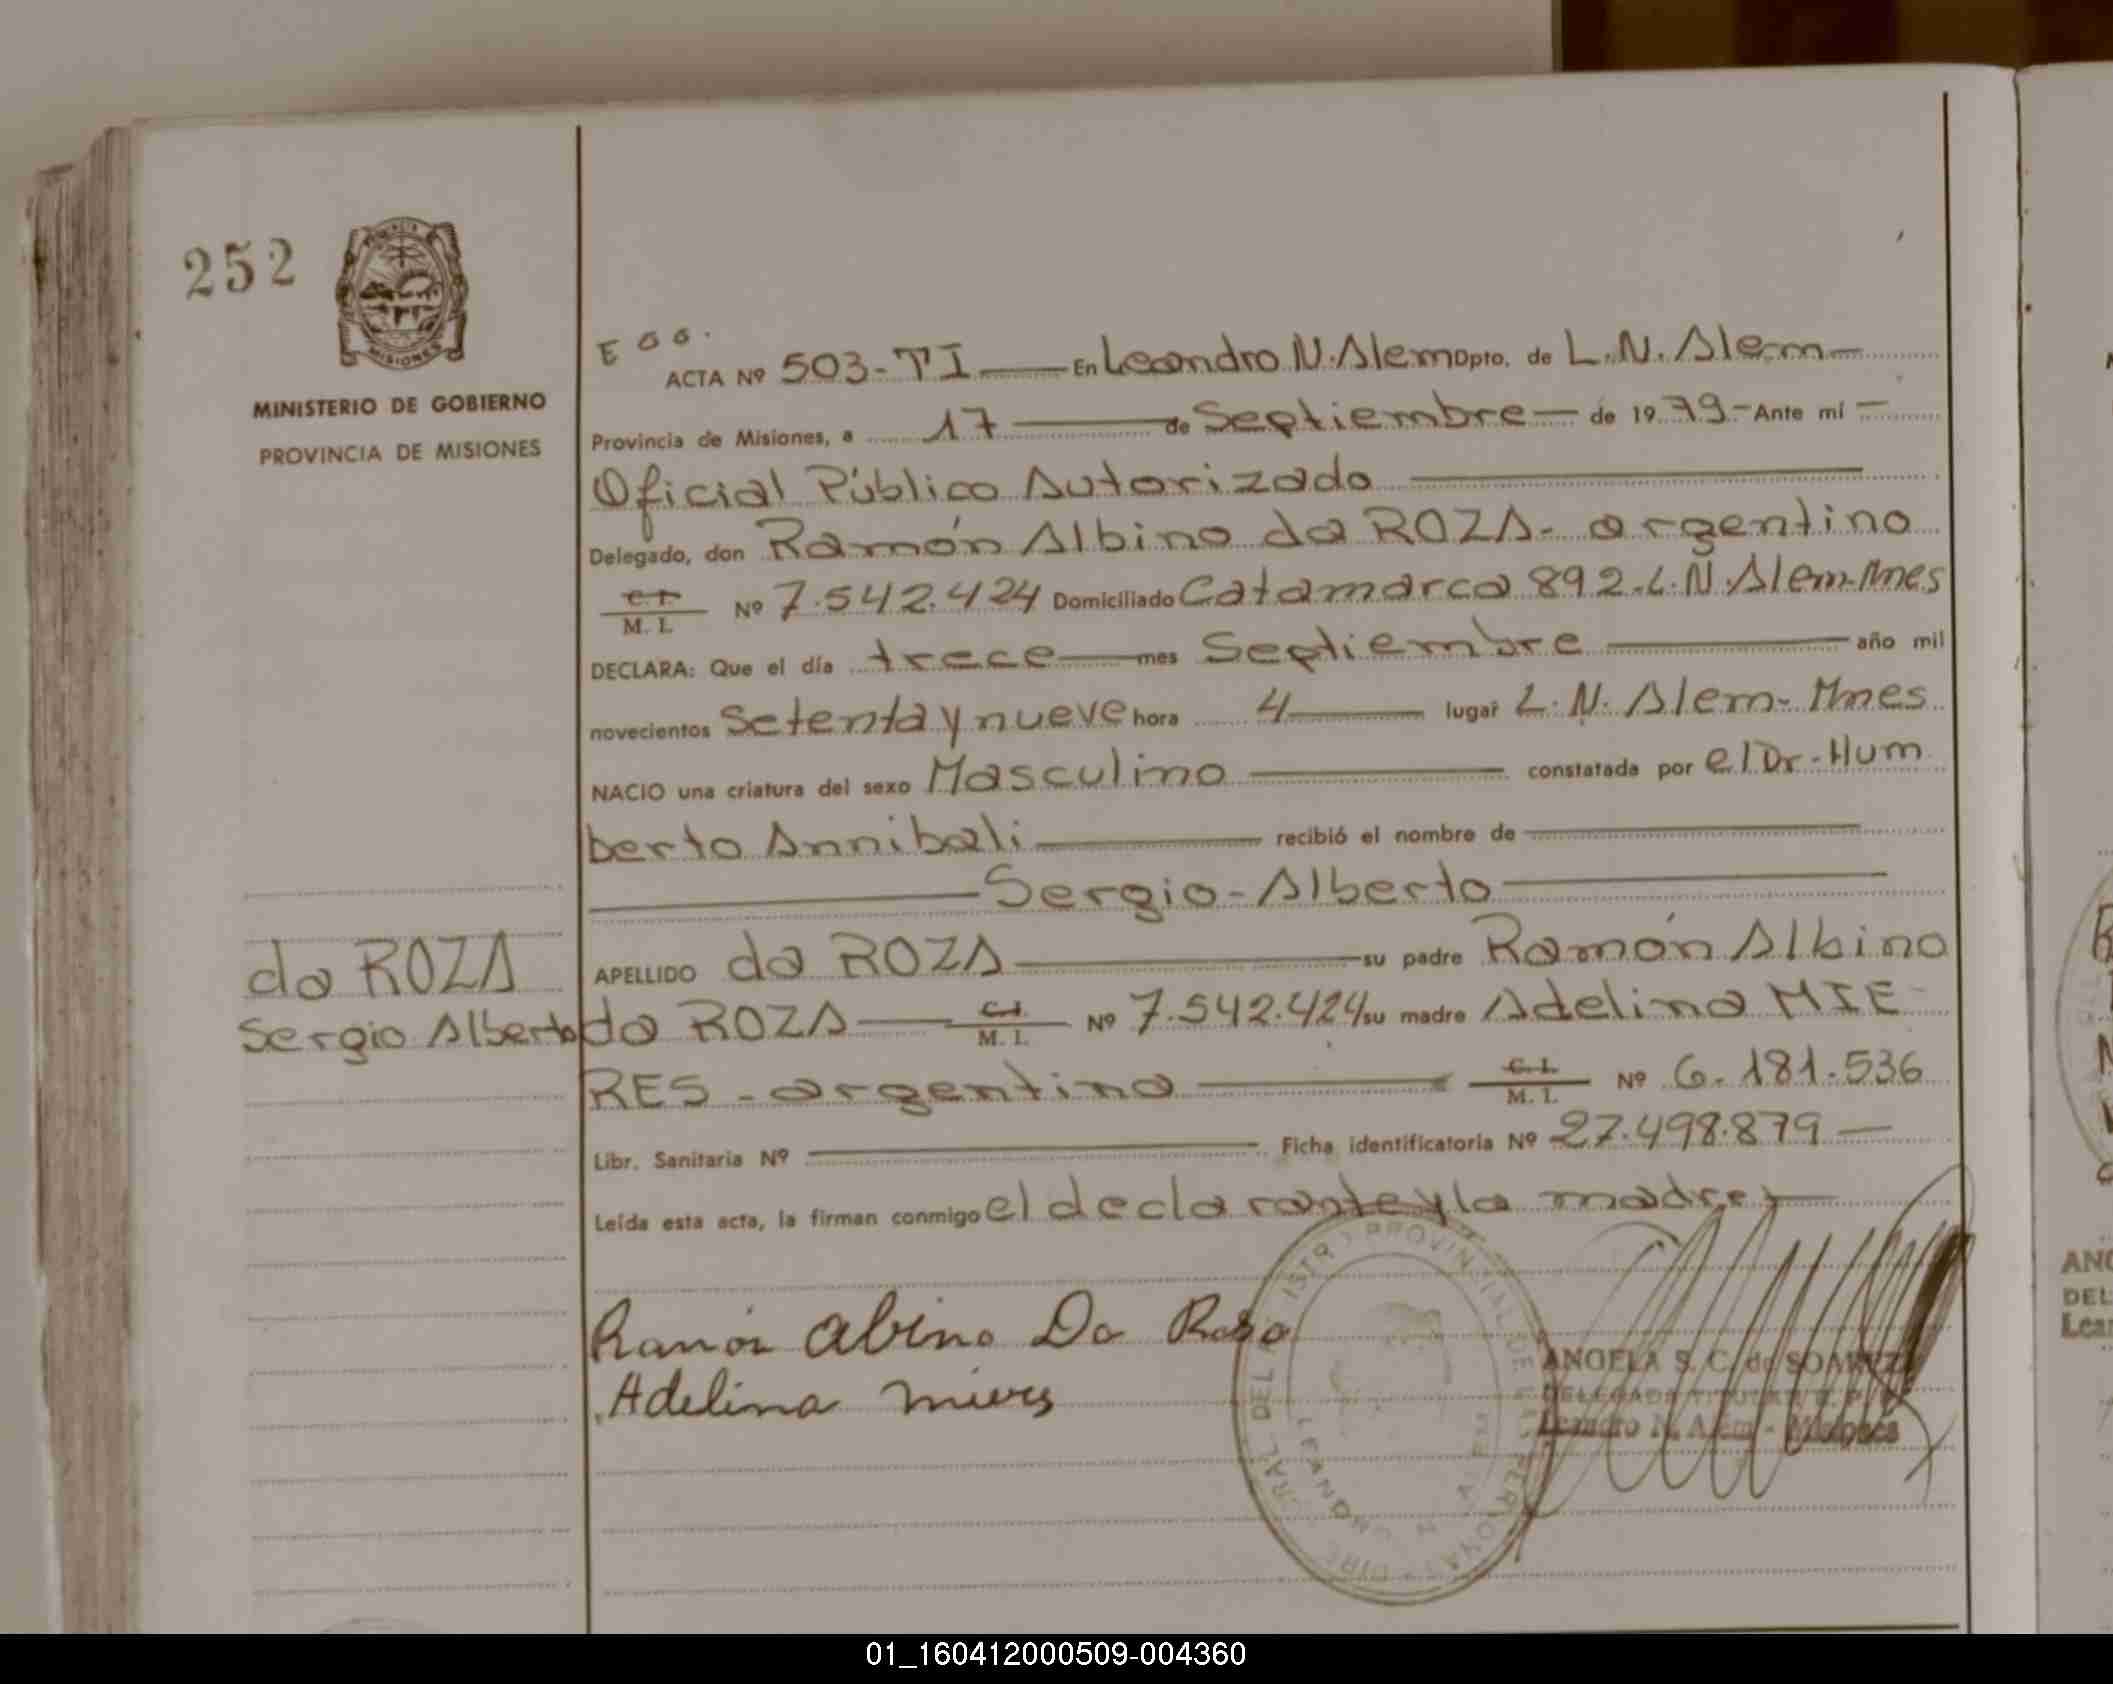 252
MISIONES
MINISTERIO DE GOBIERNO
PROVINCIA DE MISIONES
ACTA Nº 503-TI — En Leandro N. Alem Dpto. de L.N. Alem —
Provincia de Misiones, a 17 — de Septiembre — de 1979 - Ante mí —
Oficial Público Autorizado
Delegado, don Ramón Albino da ROZA - argentino
C. I. M. I. Nº 7.542.424 Domiciliado Catamarca 892-L.N. Alem-Mnes
DECLARA: Que el día trece — mes Septiembre — año mil
novecientos Setenta y nueve hora 4 — lugar L. N. Alem - Mnes
NACIO una criatura del sexo Masculino — constatada por el Dr. Hum
berto Annibali — recibió el nombre de —
— Sergio-Alberto —
da ROZA
Sergio Alberto
APELLIDO da ROZA — su padre Ramón Albino
da ROZA — C. I. M. I. Nº 7.542.424 su madre Adelina MIE
RES - argentina — C. I. M. I. Nº 6.181.536
Libr. Sanitaria Nº — Ficha identificatoria Nº 27.498.879 —
Leída esta acta, la firman conmigo el declarante y la madre
Ramón Albino Da Rosa
Adelina Mieres
PROVINCIAL DE
LEANDRO N. ALEM
ANGELA S. C. de SOAREZ
DELEGADA TITULAR R. P.
Leandro N. Alem - Misiones
ANG
DEL
Lean
01_160412000509-004360